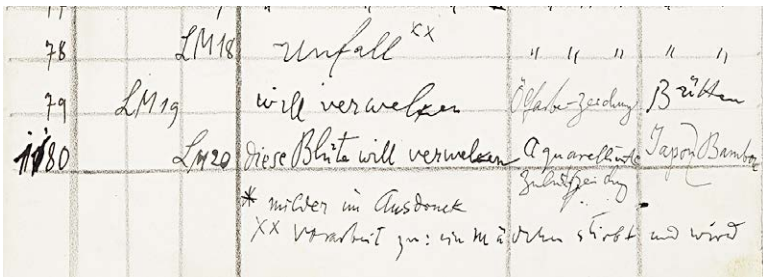 78 LM18 Unfall xx " " " " "
79 LM19 will verwelken Ölfarbe-Zeichnung Bütten
80 LM20 diese Blüte will verwelken Aquarellierte Japon Bambou
* milder im Ausdruck
xx Vorarbeit zu: ein Mädchen stirbt und wird